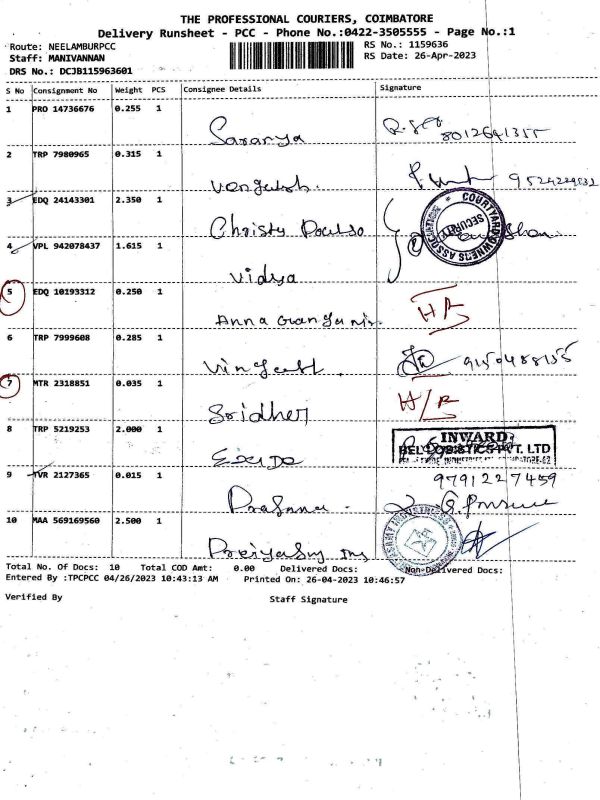 THE PROFESSIONAL COURIERS, COIMBATORE
Delivery Runsheet - PCC - Phone No.:0422-3505555 - Page No.:1
Route: NEELAMBURPCC
RS No.: 1159636
Staff: MANIVANNAN
RS Date: 26-Apr-2023
DRS No.: DCJB115963601
S No Consignment No Weight PCS Consignee Details Signature
1 PRO 14736676 0.255 1
Saranya 8012641355
2 TRP 7980965 0.315 1
3 EDQ 24143301 2.350 1
Christy COURTYARD OWNERS ASSOCIATION SECURITY
4 VPL 942078437 1.615 1
Vidya
5 EDQ 10193312 0.250 1
Anna
6 TRP 7999608 0.285 1
9150488155
7 MTR 2318851 0.035 1
Sridher
8 TRP 5219253 2.000 1
INWARD
LOGISTICS PVT. LTD
9 TVR 2127365 0.015 1
9791227459
10 MAA 569169560 2.500 1
Total No. Of Docs: 10 Total COD Amt: 0.00 Delivered Docs: Non-Delivered Docs:
Entered By :TPCPCC 04/26/2023 10:43:13 AM Printed On: 26-04-2023 10:46:57
Verified By Staff Signature